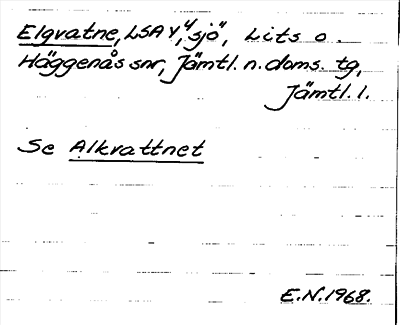 Elgvatne, LSA Y, "sjö", Lits o.
Häggenås snr, Jämtl. n. doms. tg,
Jämtl. l.
Se Alkvattnet
E.N. 1968.